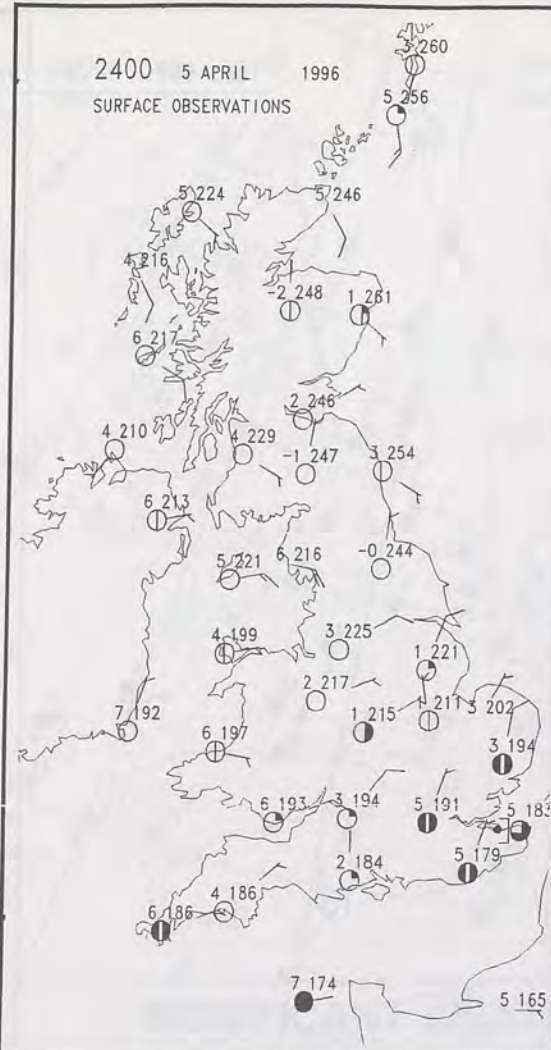 2400 5 APRIL 1996
SURFACE OBSERVATIONS
3 260
5 256
5 224
5 246
4 216
-2 248
1 261
6 217
2 246
4 210
4 229
-1 247
3 254
6 213
5 221
6 216
-0 244
4 199
3 225
1 221
2 217
3 202
7 192
1 215
1 211
6 197
3 194
6 193
3 194
5 191
5 183
2 184
5 179
4 186
6 186
7 174
5 165